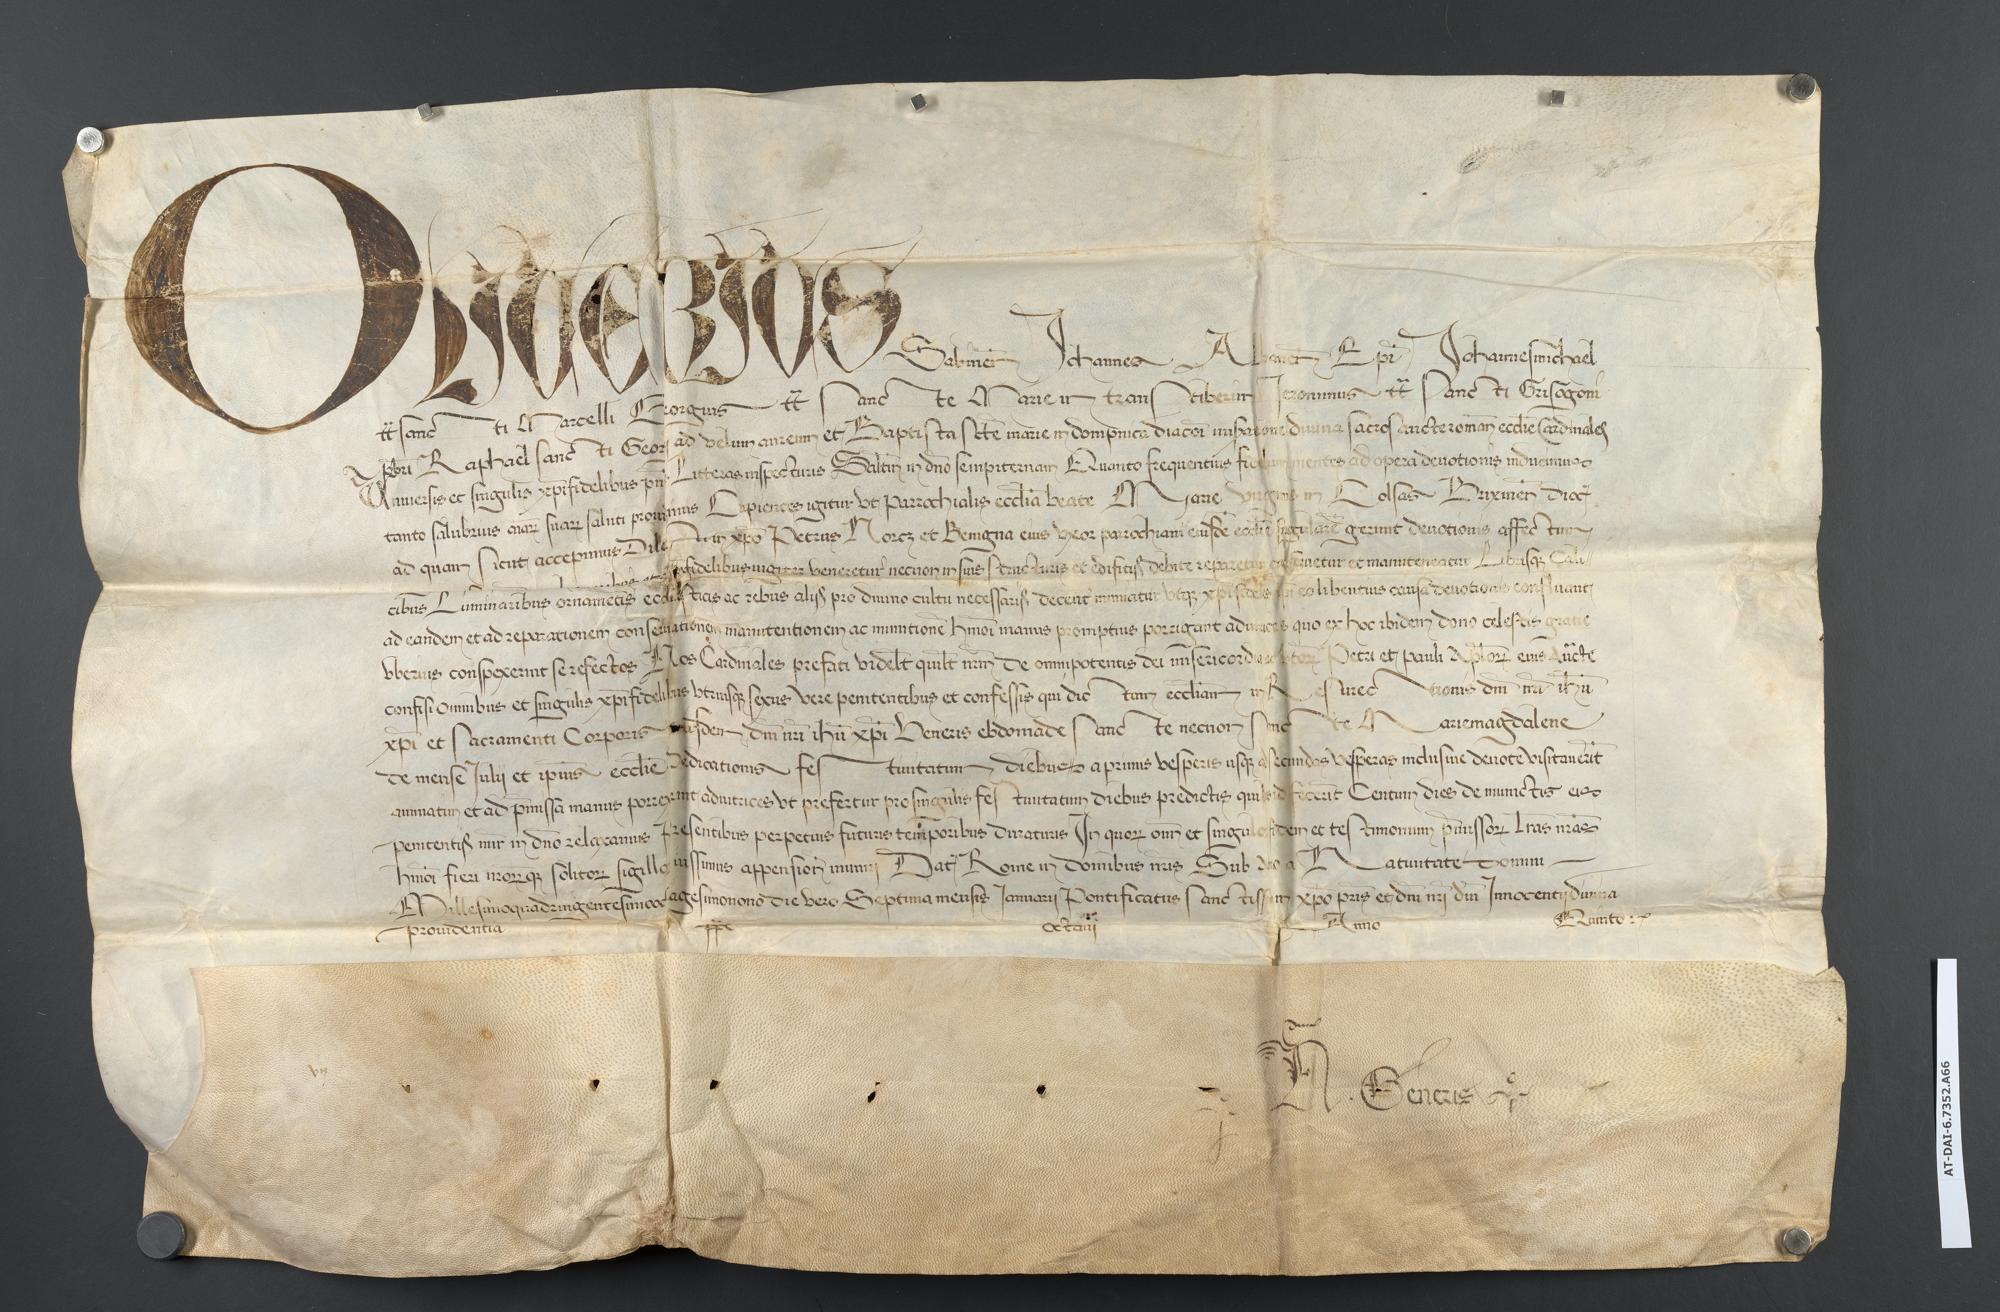 Oliverius Sabineñ Johannes Albaneñ Epi Johannesmichael
tt̃ sancti Marcelli Georgius tt̃ sancte Marie in transtiberim Jeronimus tt̃ sancti Grisogoni
pbri Raphael sancti Georgij ad velum aureum et Baptista scte marie in dompnica diaconi miseratione diuina sacrosancte roman ecclie Cardinales
Vniuersis et singulis xpifidelibus pñtes Litteras inspecturis Saltm in dno sempiternam Quanto frequentius fidelium mentes ad opera deuotionis inducimus
tanto salubrius aiar suar saluti prouidemus Cupientes igitur vt Parrochialis ecclia beate Marie virginis in Colsas Brixineñ dioc
ad quam sicut accepimus Dilecti in xpo Petrus Norcz et Benigna eius vxor parrochiani eiusde ecclie singularem gerunt deuotionis affectum
xpifidelibus iugiter veneretur necnon in suis structuris et edificijs debite reparetur conseruetur et manuteneatur Librisqz Cali
cibus Luminaribus ornametis ecclesiasticis ac rebus alijs pro diuino cultu necessarijs decenter muniatur vtqz xpifideles ipi eo libentius causa deuotionis confluant
ad eandem et ad reparationem conseruationem manutentionem ac munitione hmoi manus promptius porrigant adiutrices quo ex hoc ibidem dono celestis gratie
vberius conspexerint se refectos Nos Cardinales prefati videlt quilt nrm de omnipotentis dei misericordia ac btor Petri et pauli Aplor eius Aucte
confisi Omnibus et singulis xpifidelibus vtriusqz sexus vere penitentibus et confessis qui dictam eccliam in Resurectionis dni nri ihu
xpi et Sacramenti Corporis eiusdem dni nri ihu xpi Veneris ebdomade sancte necnon sancte Mariemagdalene
de mense Julij et ipius ecclie Dedicationis festiuitatum diebus a primis vesperis usqz ad secundas vesperas inclusiue deuote visitauerit
annuatim et ad pmissa manus porrexerint adiutrices vt prefertur pro singulis festiuitatum diebus predictis quibus id fecerit Centum dies de iniunctis eis
penitentijs mir in dno relaxamus Presentibus perpetuis futuris temporibus duraturis In quor om et singulor fidem et testimonium pmissor lras nras
hmoi fieri nrorqz solitor sigillor iussimus appension muniri Dat Rome in domibus nris Sub Anno a Natiuitate Domini
Millesimoquadringentesimooctuagesimonono die vero Septima mensis Januarij Pontificatus sanctissimi in xpo pris et dni nri dni Innocentij diuina
prouidentia ppe octaui Anno Quinto
vij
Generis
AT-DAI-6.7352.A66